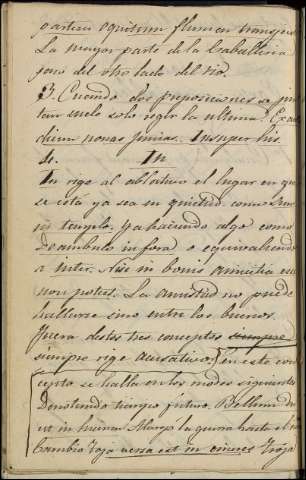 partem equitum flumen
La mayor parte de la Caballeria
paso del otro lado del rio.
3. Cuando dos preposiciones se jun
tan suele solo regir la ultima. Ex ante
diem nonas junias. Insuper his.
4. In
In rige al ablativo el lugar en que
se está ya sea en quietud como Sum
in templo, ya haciendo algo como
Deambulo in foro o equivaliendo
a inter. Nisi in bonis amicitia esse
non potest. La amistad no puede
hallarse sino entre los buenos.
Fuera destos tres conceptos siempre
siempre rige acusativo, En este con
cepto se halla en los modos siguientes
Denotando tiempo futuro. Bellum du
cit in hiemem Alarga la guerra hasta el
Cambio Troja versa est in cineres Troja